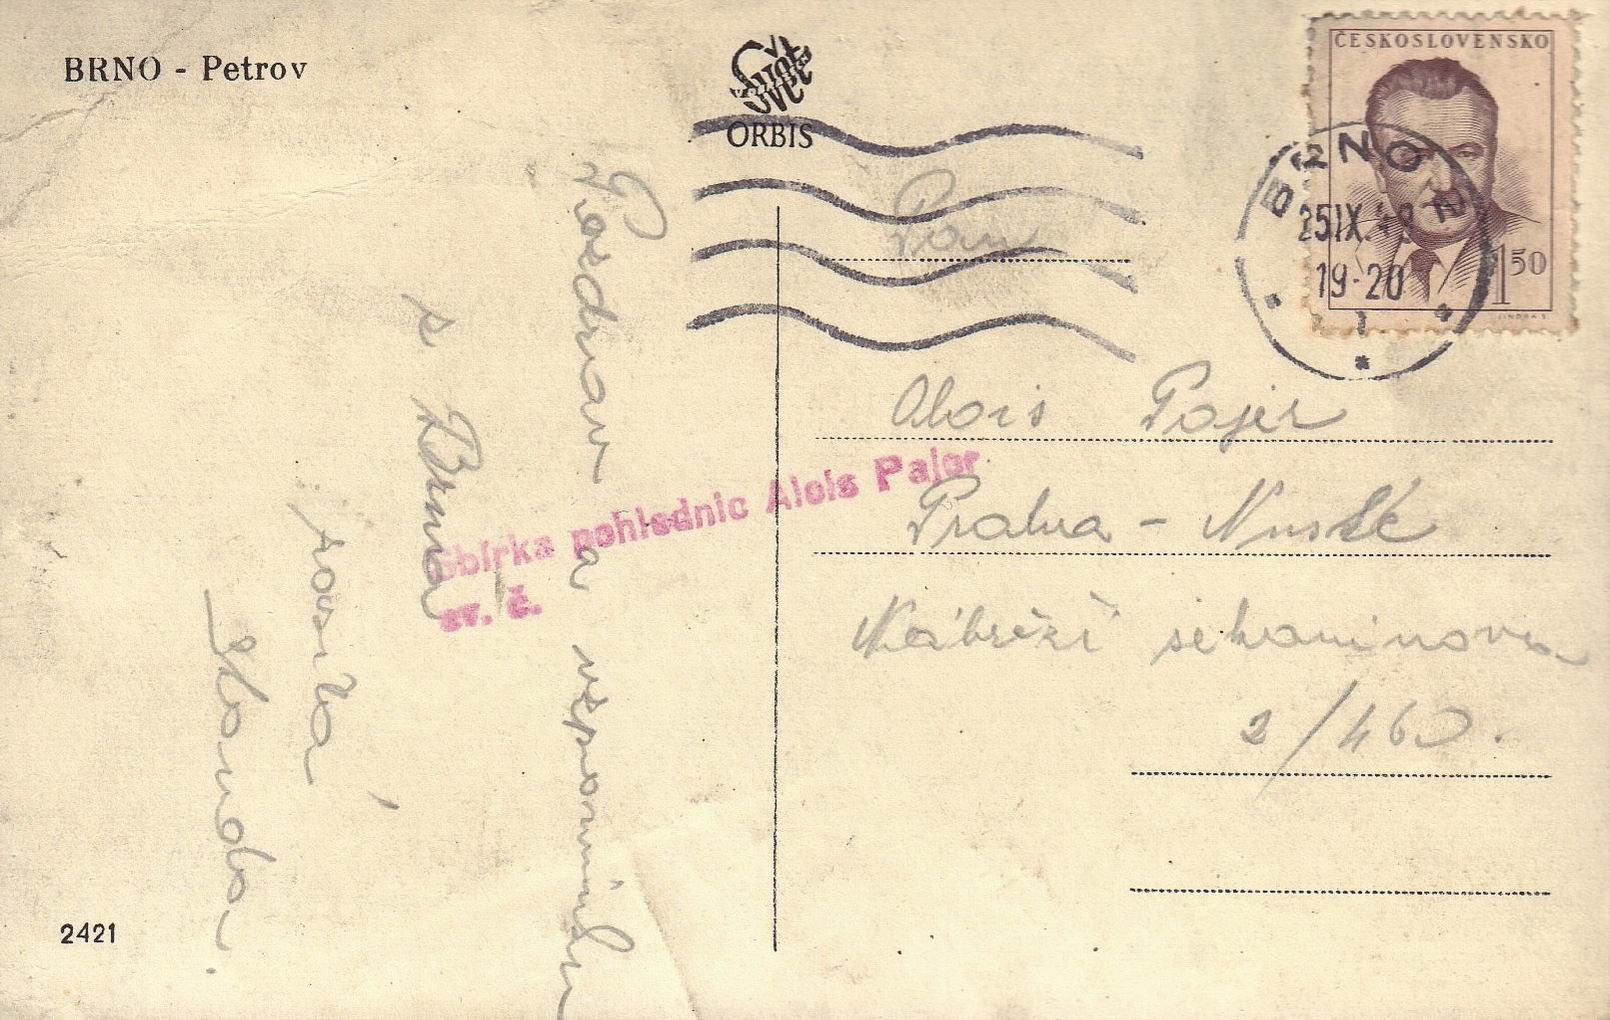 BRNO - Petrov
SVĚT
ORBIS
ČESKOSLOVENSKO
1 50
BRNO 2
25.IX.48
19-20
1
Pan
Alois Pajer
Praha - Nusle
Nábřeží sekaninova
2/460.
Pozdrav a vzpomínku
s Brna
Sbírka pohlednic Alois Pajer
sv. č.
2421